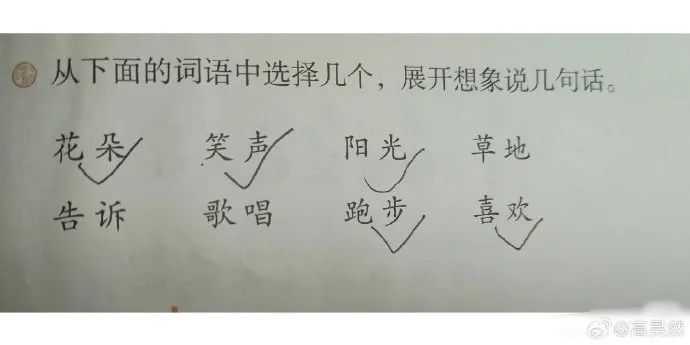 从下面的词语中选择几个，展开想象说几句话。
花朵 笑声 阳光 草地
告诉 歌唱 跑步 喜欢
@高昊然